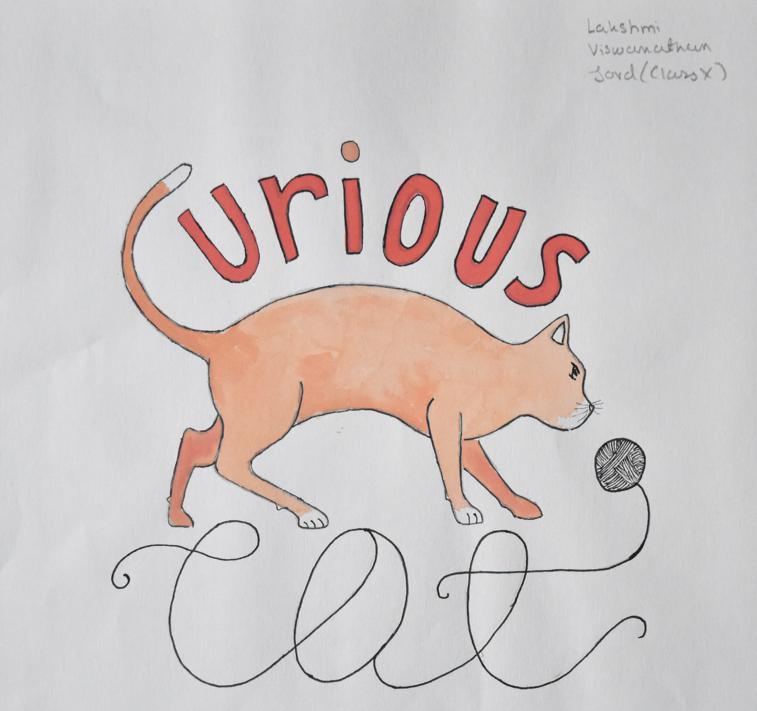 Lakshmi
Viswanathan
(Class X)
urious
cat